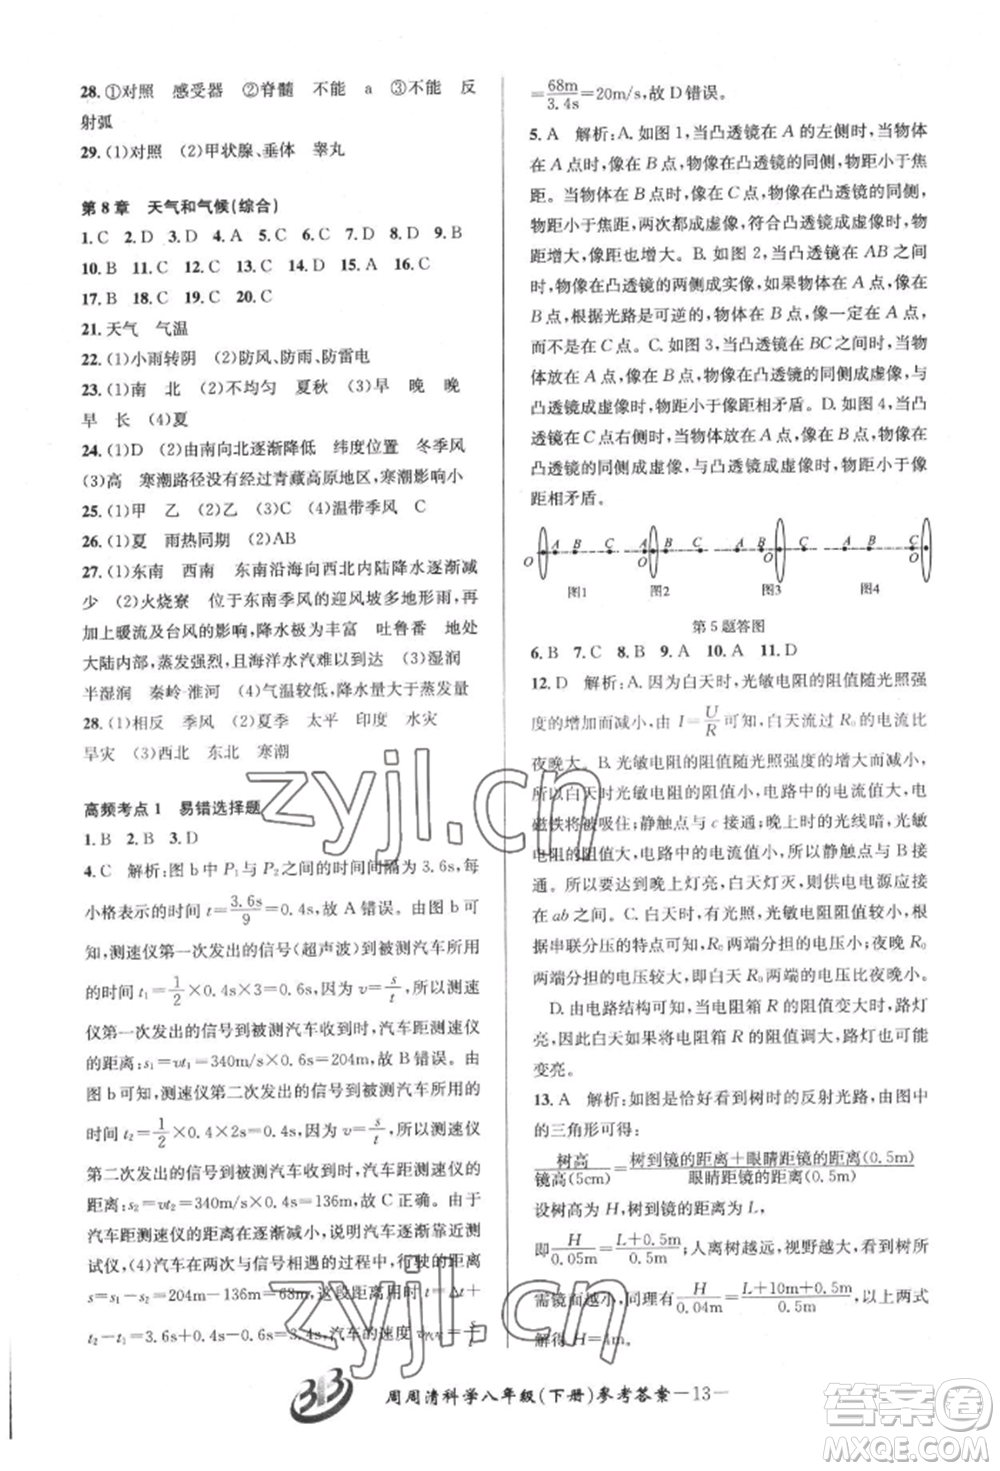 28.①对照 感受器 ②脊髓 不能 a ③不能 反
射弧
29.(1)对照 (2)甲状腺、垂体 睾丸
第8章 天气和气候(综合)
1.C 2.D 3.D 4.A 5.C 6.C 7.D 8.D 9.B
10.B 11.C 12.C 13.B 14.D 15.A 16.C
17.B 18.C 19.C 20.C
21.天气 气温
22.(1)小雨转阴 (2)防风、防雨、防雷电
23.(1)南 北 (2)不均匀 夏秋 (3)早 晚 晚
早 长 (4)夏
24.(1)D (2)由南向北逐渐降低 纬度位置 冬季风
(3)高 寒潮路径没有经过青藏高原地区,寒潮影响小
25.(1)甲 乙 (2)乙 (3)C (4)温带季风 C
26.(1)夏 雨热同期 (2)AB
27.(1)东南 西南 东南沿海向西北内陆降水逐渐减
少 (2)火烧寮 位于东南季风的迎风坡多地形雨,再
加上暖流及台风的影响,降水极为丰富 吐鲁番 地处
大陆内部,蒸发强烈,且海洋水汽难以到达 (3)湿润
半湿润 秦岭-淮河 (4)温差大,降水季节变化大
28.(1)相反 季风 (2)夏季 太平 印度 水灾
旱灾 (3)西北 东北 寒潮
高频考点1 易错选择题
1.B 2.B 3.D
4.C 解析:图b中P₁与P₂之的时间间隔为3.6s,每
小格表示的时间t=3.6s/9=0.4s,故A错误。由图b可
知,测速仪第一次发出的信号(超声波)到被测汽车所用
的时间t₁=1/2×0.4s×3=0.6s,因为v=s/t,所以测速
仪第一次发出的信号到被测汽车收到时,汽车距测速仪
的距离:s₁=vt₁=340m/s×0.6s=204m,故B错误。由
图b可知,测速仪第二次发出的信号到被测汽车所用的
时间t₂=1/2×0.4s×2=0.4s,因为v=s/t,所以测速仪
第二次发出的信号到被测汽车收到时,汽车距测速仪的
距离:s₂=vt₂=340m/s×0.4s=136m,故C正确。由于
汽车距测速仪的距离在逐渐减小,说明汽车逐渐靠近测
试仪,(4)汽车在两次与信号相遇的过程中,行驶的距离
s=s₁-s₂=204m-136m=68m,这段距离用时:Δt=
t₂-t₁=3.6s+0.2s-0.4s,汽车的速度v汽车=s/t
=68m/3.4s=20m/s,故D错误。
5.A 解析:A.如图1,当凸透镜在A的左侧时,当物体
在A点时,像在B点,物像在凸透镜的同侧,物距小于焦
距。当物体在B点时,像在C点,物像在凸透镜的同侧,
物距小于焦距,两次都成虚像,符合凸透镜成虚像时,物
距增大,像距增大。B.如图2,当凸透镜在AB之间时,
物像在凸透镜的两侧成实像,当物体在A点时,像在B
点,根据光路是可逆的,当物体在B点时,像一定在A点,
而不是在C点。C.如图3,当凸透镜在BC之间时,当
物体放在A点时,像在B点,物像在凸透镜的同侧成虚
像,凸透镜成虚像时,物距小于像距相矛盾。D.如图4,当
凸透镜在C点右侧时,当物体放在A点时,像在B点,物
像在凸透镜的同侧成虚像,与凸透镜成虚像时,物距小于像
距相矛盾。
O A B C
图1
O A B C
图2
A B C O
图3
A B C O
图4
第5题答图
6.B 7.C 8.B 9.A 10.A 11.D
12.D 解析:A.因为白天时,光敏电阻的阻值随光照强
度的增加而减小,由I=U/R可知,白天流过R₀的电流比
夜晚大。B.因为光敏电阻的阻值随光照强度的增加而减
小,所以白天时光敏电阻的阻值小,电路中的电流值大,电
磁铁将被吸住;静触点与c接通;晚上时的光线暗,光敏
电阻的阻值大,电路中的电流值小,所以静触点与B接
通。所以要达到晚上灯亮,白天灯灭,则供电电源应接
在ab之间。C.白天,有光照,光敏电阻的阻值较小,根
据串联分压的特点可知,R₀两端分担的电压小;夜晚R₀
两端分担的电压较大,即白天R₀两端的电压比夜晚小。
D.由电路结构可知,当电阻箱R的阻值变大时,路灯
会变暗,因此白天如果将电阻箱R的阻值调大,路灯可能
变亮。
13.A 解析:如图是恰好看到树时的反射光路,由图中
的三角形可得:
树高/镜高(5cm)=树到镜的距离+眼睛距镜的距离(0.5m)/眼睛距镜的距离(0.5m)
设树高为H,树到镜的距离为L,
即H/0.05m=L+0.5m/0.5m;人离树越远,视野越大,看到树全部所
需镜面越小,同理有H/0.04m=L+10m+0.5m/0.5m,以上两式
解得H=4m。
周周清科学八年级(下册)参考答案—13—
zyjl.cn
zyjl.cn
答案圈
MXQE.COM